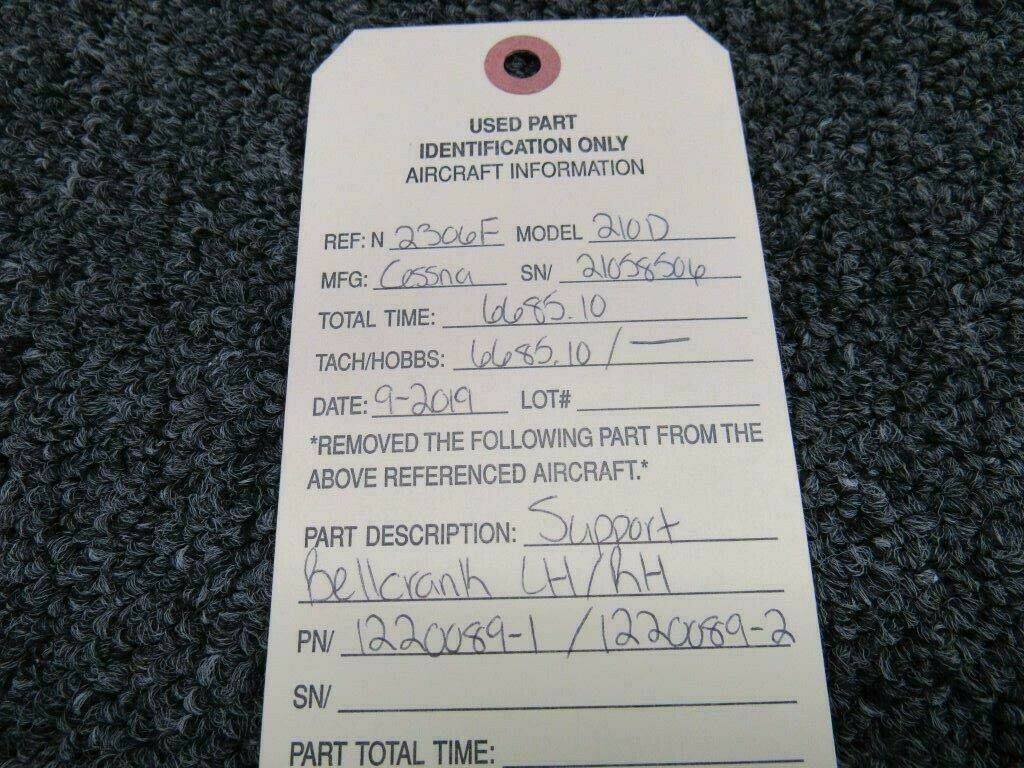 USED PART
IDENTIFICATION ONLY
AIRCRAFT INFORMATION
REF: N 2306F MODEL 210D
MFG: Cessna SN/ 21058506
TOTAL TIME: 6685.10
TACH/HOBBS: 6685.10 / —
DATE: 9-2019 LOT#
*REMOVED THE FOLLOWING PART FROM THE
ABOVE REFERENCED AIRCRAFT.*
PART DESCRIPTION: Support
Bellcrank LH/RH
PN/ 1220089-1 / 1220089-2
SN/
PART TOTAL TIME: